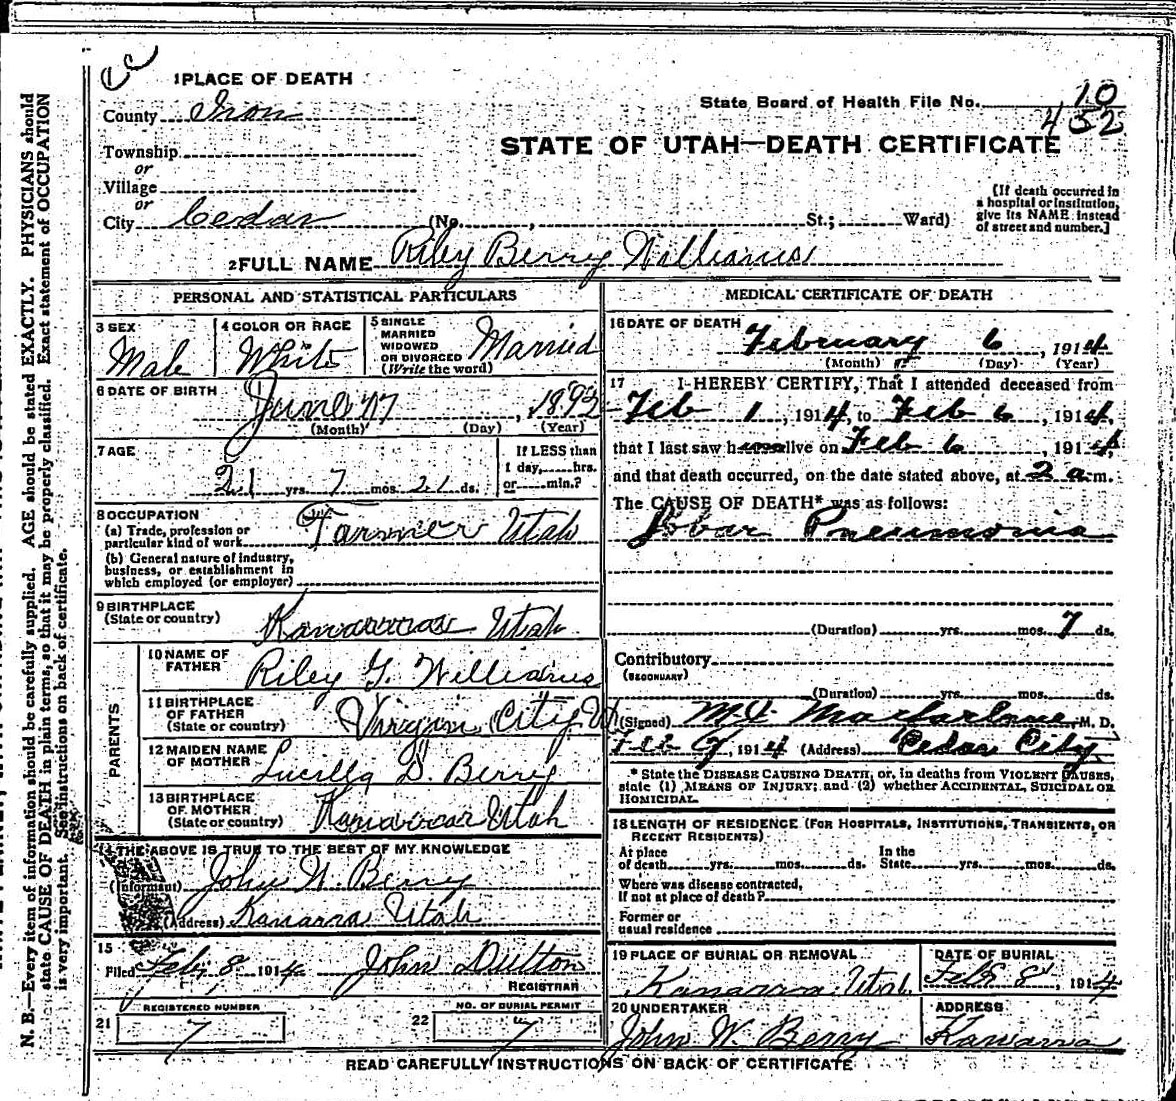 1 PLACE OF DEATH
County Iron
State Board of Health File No. 10
452
Township
or
Village
or
City Cedar (No. , St.; Ward)
STATE OF UTAH—DEATH CERTIFICATE
[If death occurred in
a hospital or institution,
give its NAME instead
of street and number.]
2 FULL NAME Riley Berry Williams
PERSONAL AND STATISTICAL PARTICULARS
3 SEX
Male
4 COLOR OR RACE
White
5 SINGLE
MARRIED
WIDOWED
OR DIVORCED
(Write the word)
Married
6 DATE OF BIRTH
June 17, 1892
(Month) (Day) (Year)
7 AGE
21 yrs. 7 mos. 21 ds.
If LESS than
1 day, hrs.
or min.?
8 OCCUPATION
(a) Trade, profession or
particular kind of work Farmer Utah
(b) General nature of industry,
business, or establishment in
which employed (or employer)
9 BIRTHPLACE
(State or country) Utah
PARENTS
10 NAME OF
FATHER Riley G. Williams
11 BIRTHPLACE
OF FATHER
(State or country) Virgin City, Ut
12 MAIDEN NAME
OF MOTHER Lucilla D. Berry
13 BIRTHPLACE
OF MOTHER
(State or country) Utah
14 THE ABOVE IS TRUE TO THE BEST OF MY KNOWLEDGE
(Informant) John W. Berry
(Address) Kanarra Utah
15
Filed Feb 8, 1914 John Dutton
REGISTRAR
REGISTERED NUMBER
21 7
NO. OF BURIAL PERMIT
22 7
MEDICAL CERTIFICATE OF DEATH
16 DATE OF DEATH
February 6, 1914
(Month) (Day) (Year)
17 I HEREBY CERTIFY, That I attended deceased from
Feb 1, 1914, to Feb 6, 1914,
that I last saw him alive on Feb 6, 1914,
and that death occurred, on the date stated above, at 2 a m.
The CAUSE OF DEATH* was as follows:
Lobar Pneumonia
(Duration) yrs. mos. 7 ds.
Contributory
(SECONDARY)
(Duration) yrs. mos. ds.
(Signed) Macfarlane M. D.
Feb 1914 (Address) Cedar City
* State the DISEASE CAUSING DEATH, or, in deaths from VIOLENT CAUSES,
state (1) MEANS OF INJURY; and (2) whether ACCIDENTAL, SUICIDAL OR
HOMICIDAL.
18 LENGTH OF RESIDENCE (FOR HOSPITALS, INSTITUTIONS, TRANSIENTS, OR
RECENT RESIDENTS)
At place
of death yrs. mos. ds.
In the
State yrs. mos. ds.
Where was disease contracted,
If not at place of death?
Former or
usual residence
19 PLACE OF BURIAL OR REMOVAL
Kanarra Utah
DATE OF BURIAL
Feb 8, 1914
20 UNDERTAKER
John W. Berry
ADDRESS
Kanarra
READ CAREFULLY INSTRUCTIONS ON BACK OF CERTIFICATE
N. B.—Every item of information should be carefully supplied. AGE should be stated EXACTLY. PHYSICIANS should
state CAUSE OF DEATH in plain terms, so that it may be properly classified. Exact statement of OCCUPATION
is very important. See instructions on back of certificate.